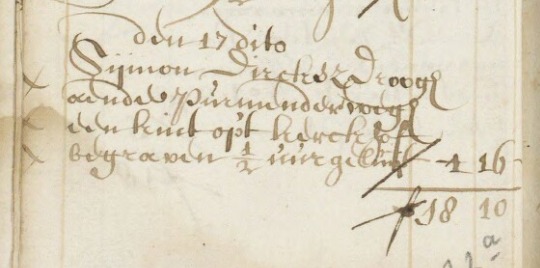 den 17 dito
Sijmon Dircksz Droogh
aende purmenderwegh
een kint opt kerckhof
begraven ½ uur geluijt - 4 16 -
f 18 10
a